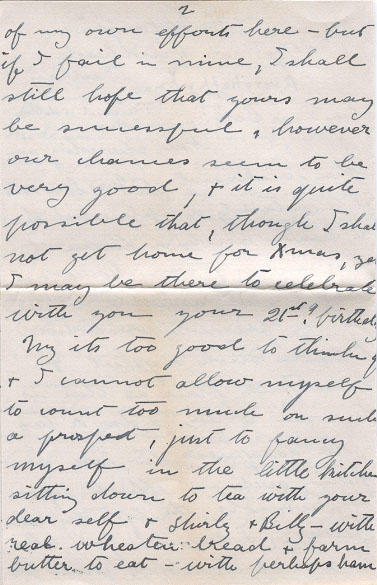 2
of my own efforts here - but
if I fail in mine, I shall
still hope that yours may
be successful, however
our chances seem to be
very good, & it is quite
possible that, though I shal
not get home for Xmas, ye
I may be there to celebrate
with you your 21st birthday
My its too good to think
& I cannot allow myself
to count too much on such
a prospect, just to fancy
myself in the little kitche
sitting down to tea with your
dear self & Shirly & Billy - with
real wheaten bread & farm
butter to eat - with perhaps ham